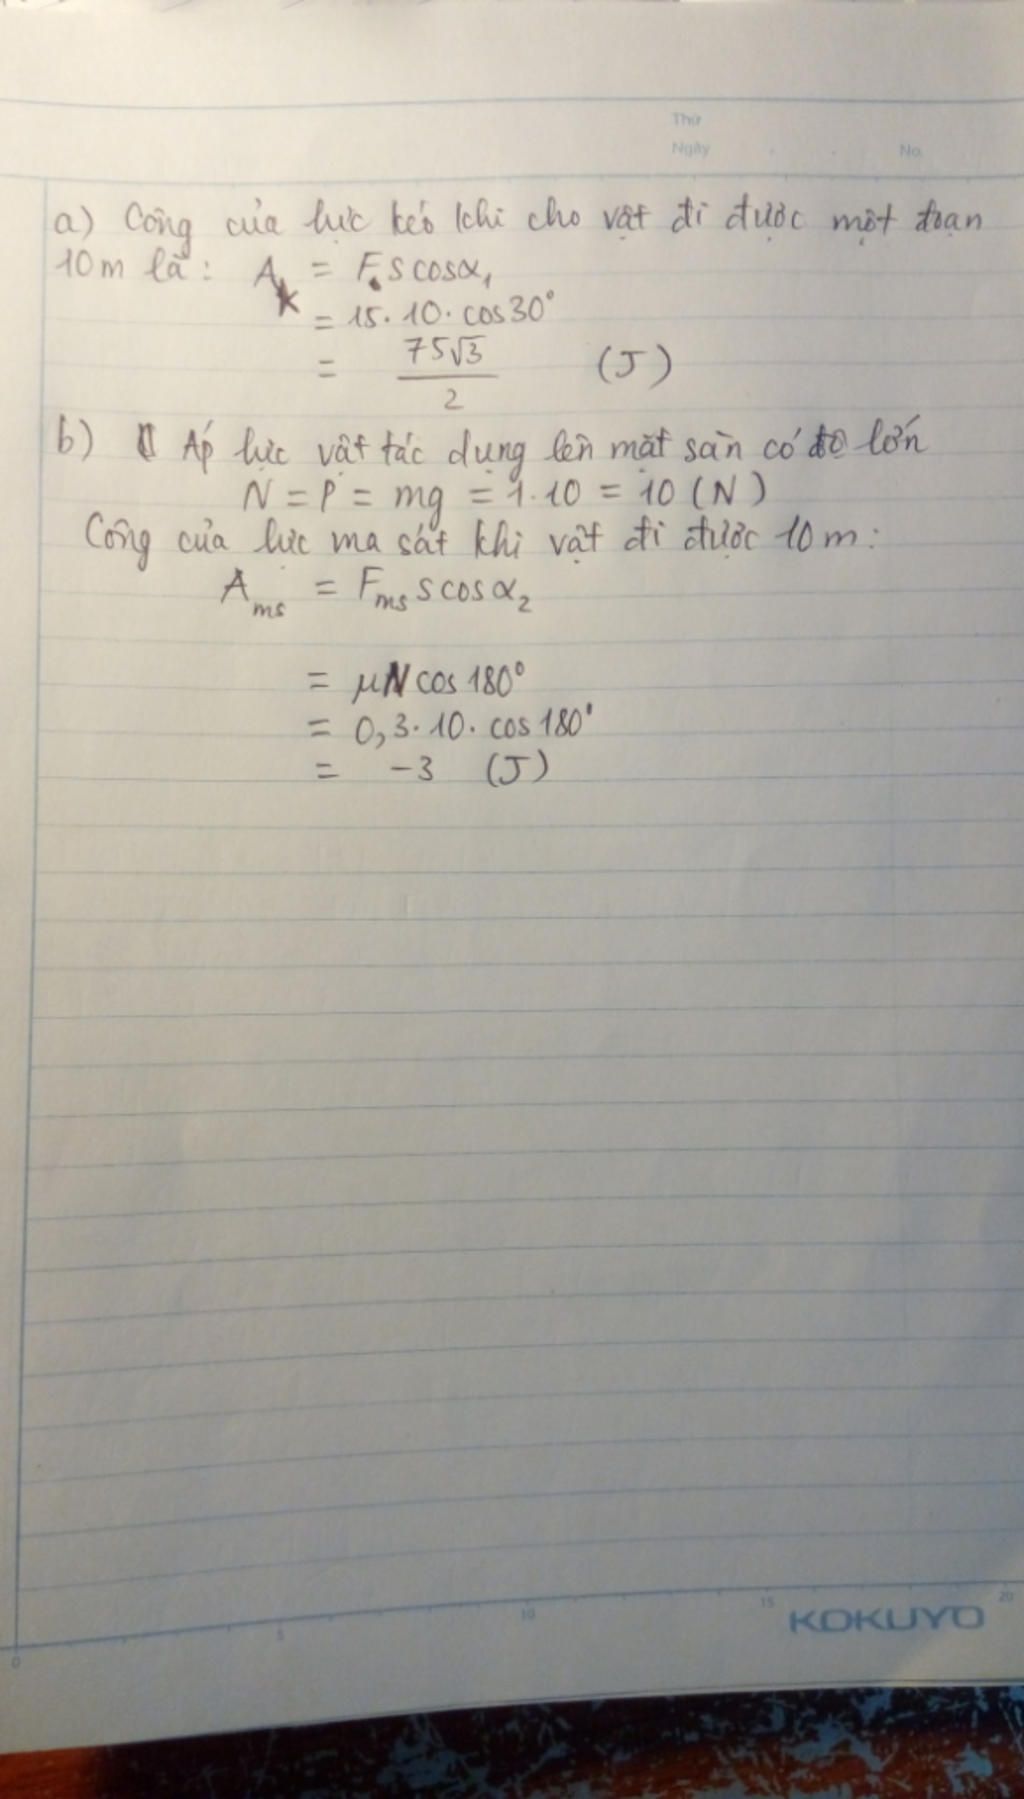 Thứ
Ngày . . No.
a) Công của lực kéo khi cho vật đi được một đoạn
10m là: Ak = F.s cosα₁
= 15.10.cos30°
= 75√3/2 (J)
b) Áp lực vật tác dụng lên mặt sàn có độ lớn
N = P = mg = 1.10 = 10 (N)
Công của lực ma sát khi vật đi được 10m:
Ams = Fms s cosα₂
= μN cos 180°
= 0,3.10. cos 180°
= -3 (J)
0 5 10 15 20
KOKUYO